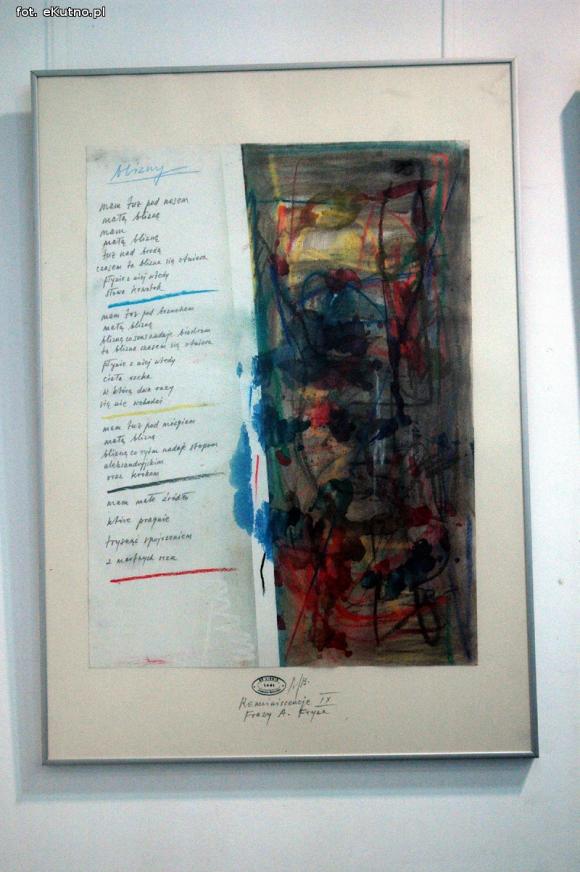 fot. eKutno.pl
blizny
mam tuż pod nosem
małą bliznę
mam
małą bliznę
tuż nad brodą
czasem ta blizna się otwiera
płynie z niej wtedy
słowo
mam tuż pod brzuchem
małą bliznę
bliznę co sens nadaje biodrom
ta blizna czasem się otwiera
płynie z niej wtedy
ciała rzeka
w którą dwa razy
się nie wchodzi
mam tuż pod mózgiem
małą bliznę
bliznę co rytm nadaje stopom
aleksandryjskim
oraz krokom
mam małe źródło
które pragnie
trysnąć spojrzeniem
z martwych rzek
Reminiscencje IX
Frazy A.